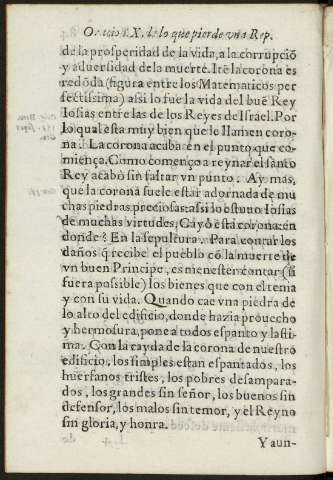 Oracio. X. de lo que pierde vna Rep.
de la prosperidad de la vida, a la corrupciõ
y aduersidad de la muerte. Itẽ la corona es
redõda (figura entre los Matematicos per
fectissima) assi lo fue la vida del buẽ Rey
Iosias entre las de los Reyes de Israel. Por
lo qual esta muy bien que le llamen coro-
na. La corona acaba en el punto que co-
miença. Como començo a reynar el santo
Rey acabò sin faltar vn punto. Ay mas,
que la corona suele estar adornada de mu
chas piedras preciosas: assi lo estuuo Iosias
de muchas virtudes. Cayò esta corona: en
donde? En la sepultura. Para contar los
daños q̃ recibe el pueblo cõ la muerte de
vn buen Principe, es menester contar (si
fuera possible) los bienes que con el tenia
y con su vida. Quando cae vna piedra de
lo alto del edificio, donde hazia prouecho
y hermosura, pone a todos espanto y lasti-
ma. Con la cayda de la corona de nuestro
edificio, los simples estan espantados, los
huerfanos tristes, los pobres desampara-
dos, los grandes sin señor, los buenos sin
defensor, los malos sin temor, y el Reyno
sin gloria, y honra.
Y aun-